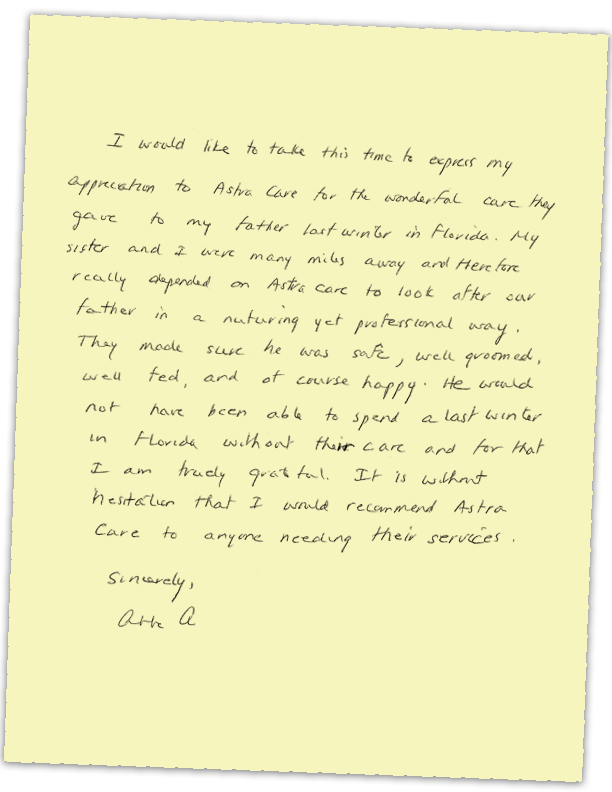 I would like to take this time to express my
appreciation to Astra Care for the wonderful care they
gave to my father last winter in Florida. My
sister and I were many miles away and therefore
really depended on Astra Care to look after our
father in a nuturing yet professional way.
They made sure he was safe, well groomed,
well fed, and of course happy. He would
not have been able to spend a last winter
in Florida without their care and for that
I am truely grateful. It is without
hesitation that I would recommend Astra
Care to anyone needing their services.
Sincerely,
A